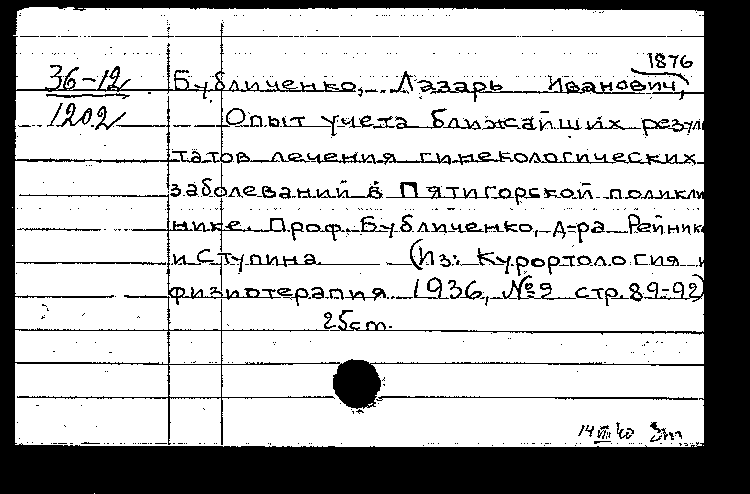 1876
36-12 Бубличенко, Лазарь Иванович,
1202 Опыт учета ближайших резуль
татов лечения гинекологических
заболеваний в Пятигорской поликли
нике. Проф. Бубличенко, д-ра Рейник
и Ступина (Из: Курортология и
физиотерапия 1936, №2 стр. 89-92)
25cm.
14 VIII 40